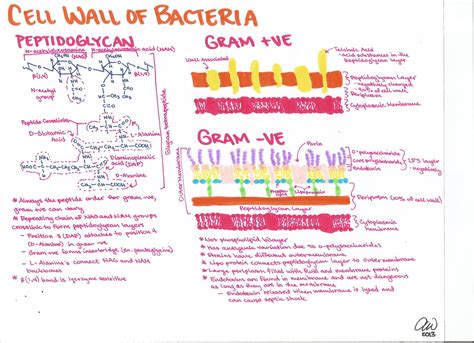 CELL WALL OF BACTERIA
PEPTIDOGLYCAN
N-acetylglucosamine (NAG)
N-acetylmuramic acid (NAM)
β(1,4)
β(1,4)
N-acetyl group
Peptide Crosslinks
D-Glutamic Acid
L-Alanine
Diaminopimelic acid (DAP)
D-Alanine
Glycan tetrapeptide
* Always the peptide order for gram -ve, gram +ve can vary
* Repeating chain of NAG and NAM groups crosslink to form peptidoglycan layers
- Position 3 (DAP) attaches to position 4 (D-Alanine) in gram -ve
- Gram +ve forms interbridge (ex. pentaglycine)
- L-Alanine's connect NAG and NAM backbones
* β(1,4) bond is lysozyme sensitive
GRAM +VE
Wall Associated
Teichoic Acid
- acid substances in the Peptidoglycan layer
Peptidoglycan Layer
- negatively charged
- 90% of cell wall
Periplasm
Cytoplasmic Membrane
GRAM -VE
Outer Membrane
Porin
O-polysaccharide
Core polysaccharide
LPS layer
Endotoxin
Lipoprotein
Peptidoglycan Layer
Periplasm
Cytoplasmic Membrane
* Has phospholipid bilayer
* Has antigenic variation due to o-polysaccharides
* Strains have different outer membrane
* Lipo protein connects peptidoglycan layer to outer membrane
* Large periplasm filled with fluid and membrane proteins
* Endotoxins are found in membrane and are not dangerous as long as they are in the membrane
- Endotoxin released when membrane is lysed and can cause septic shock
2013